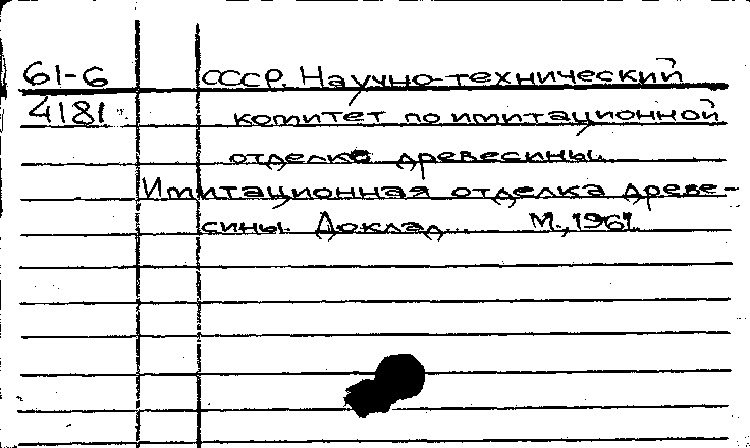 61-6 СССР. Научно-технический
4181 комитет по имитационной
отделке древесины.
Имитационная отделка древе-
сины. Доклад... М., 1961.